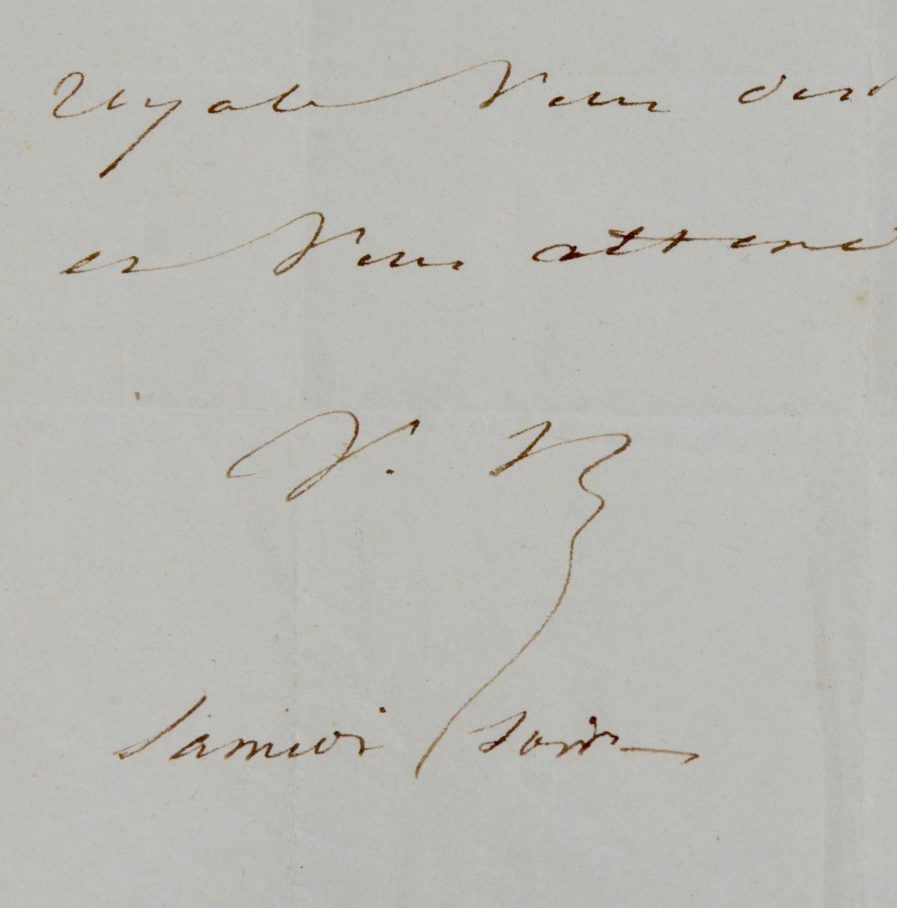 royale vous dési
et vous attend
V. H
Samedi soir